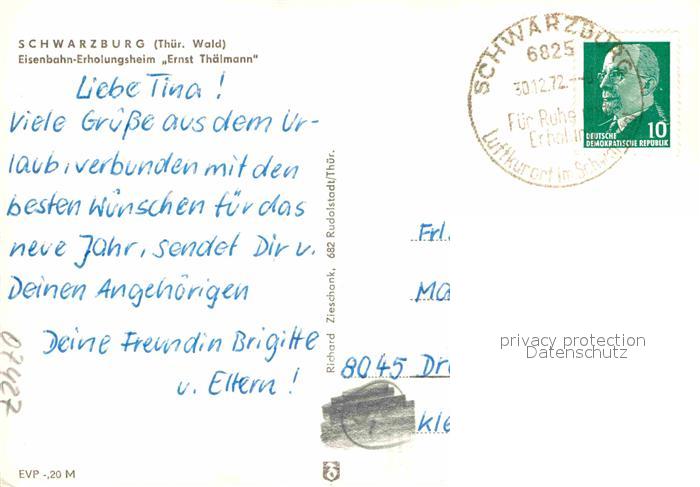 SCHWARZBURG (Thür. Wald)
Eisenbahn-Erholungsheim „Ernst Thälmann"
Liebe Tina!
Viele Grüße aus dem Ur-
laub, verbunden mit den
besten Wünschen für das
neue Jahr, sendet Dir u.
Deinen Angehörigen
Deine Freundin Brigitte
u. Eltern!
07427
EVP -,20 M
Richard Zieschank, 682 Rudolstadt/Thür.
SCHWARZBURG
6825
30.12.72.
Für Ruhe
Luftkurort im
10
DEUTSCHE
DEMOKRATISCHE REPUBLIK
Frl.
8045
privacy protection
Datenschutz